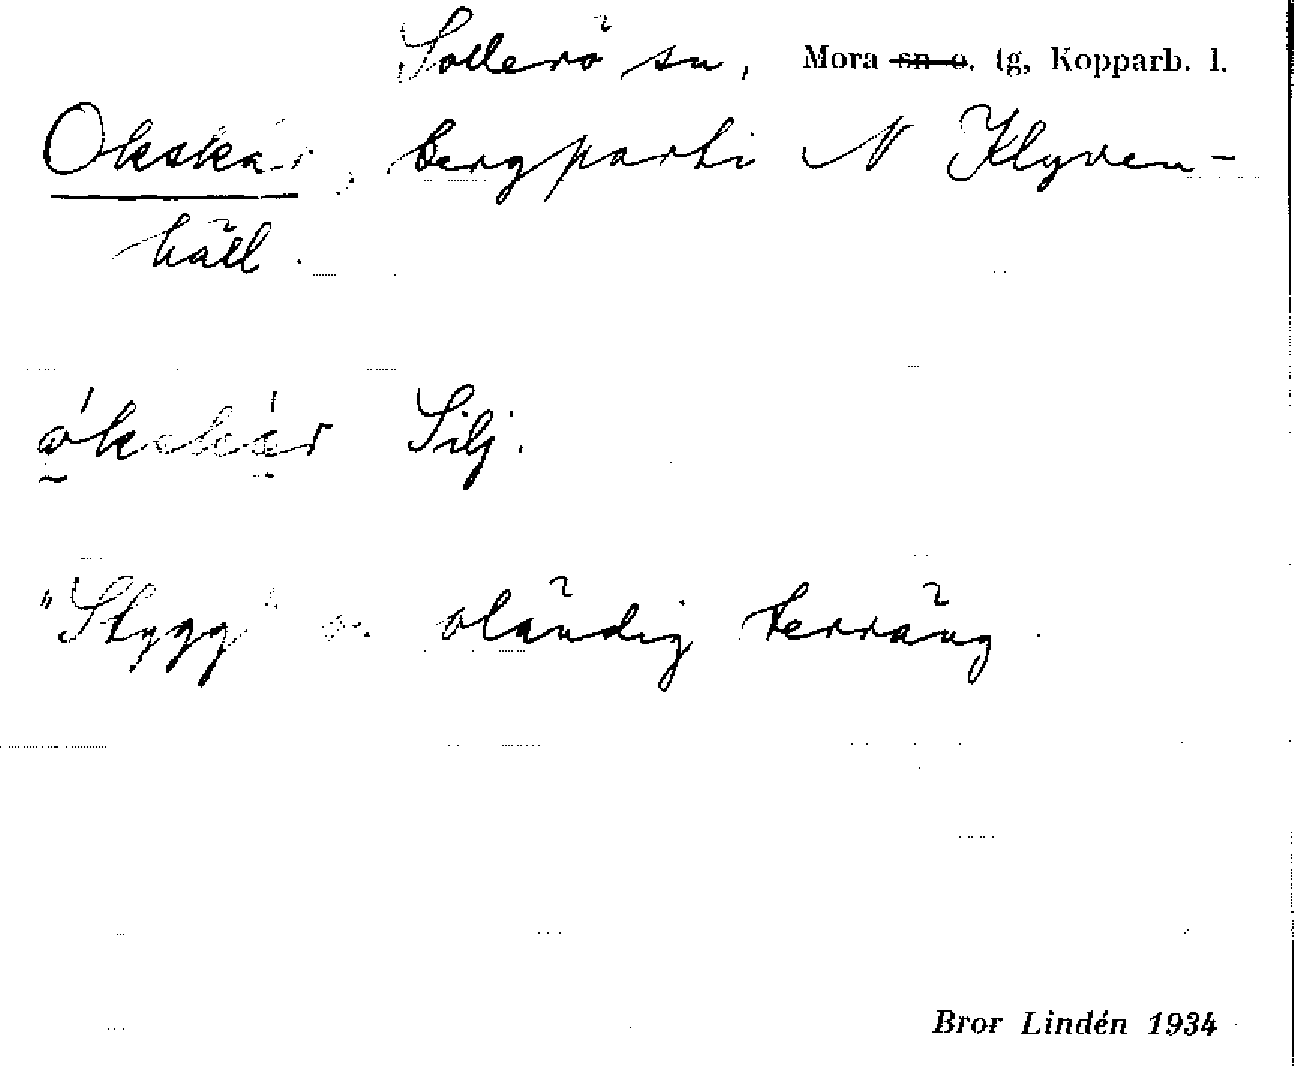 Sollerö sn, Mora sn o. tg, Kopparb. l.
Okskär, bergparti N Klyven-
häll.
ókskár Silj.
"Stygg" o. oländig terräng.
Bror Lindén 1934